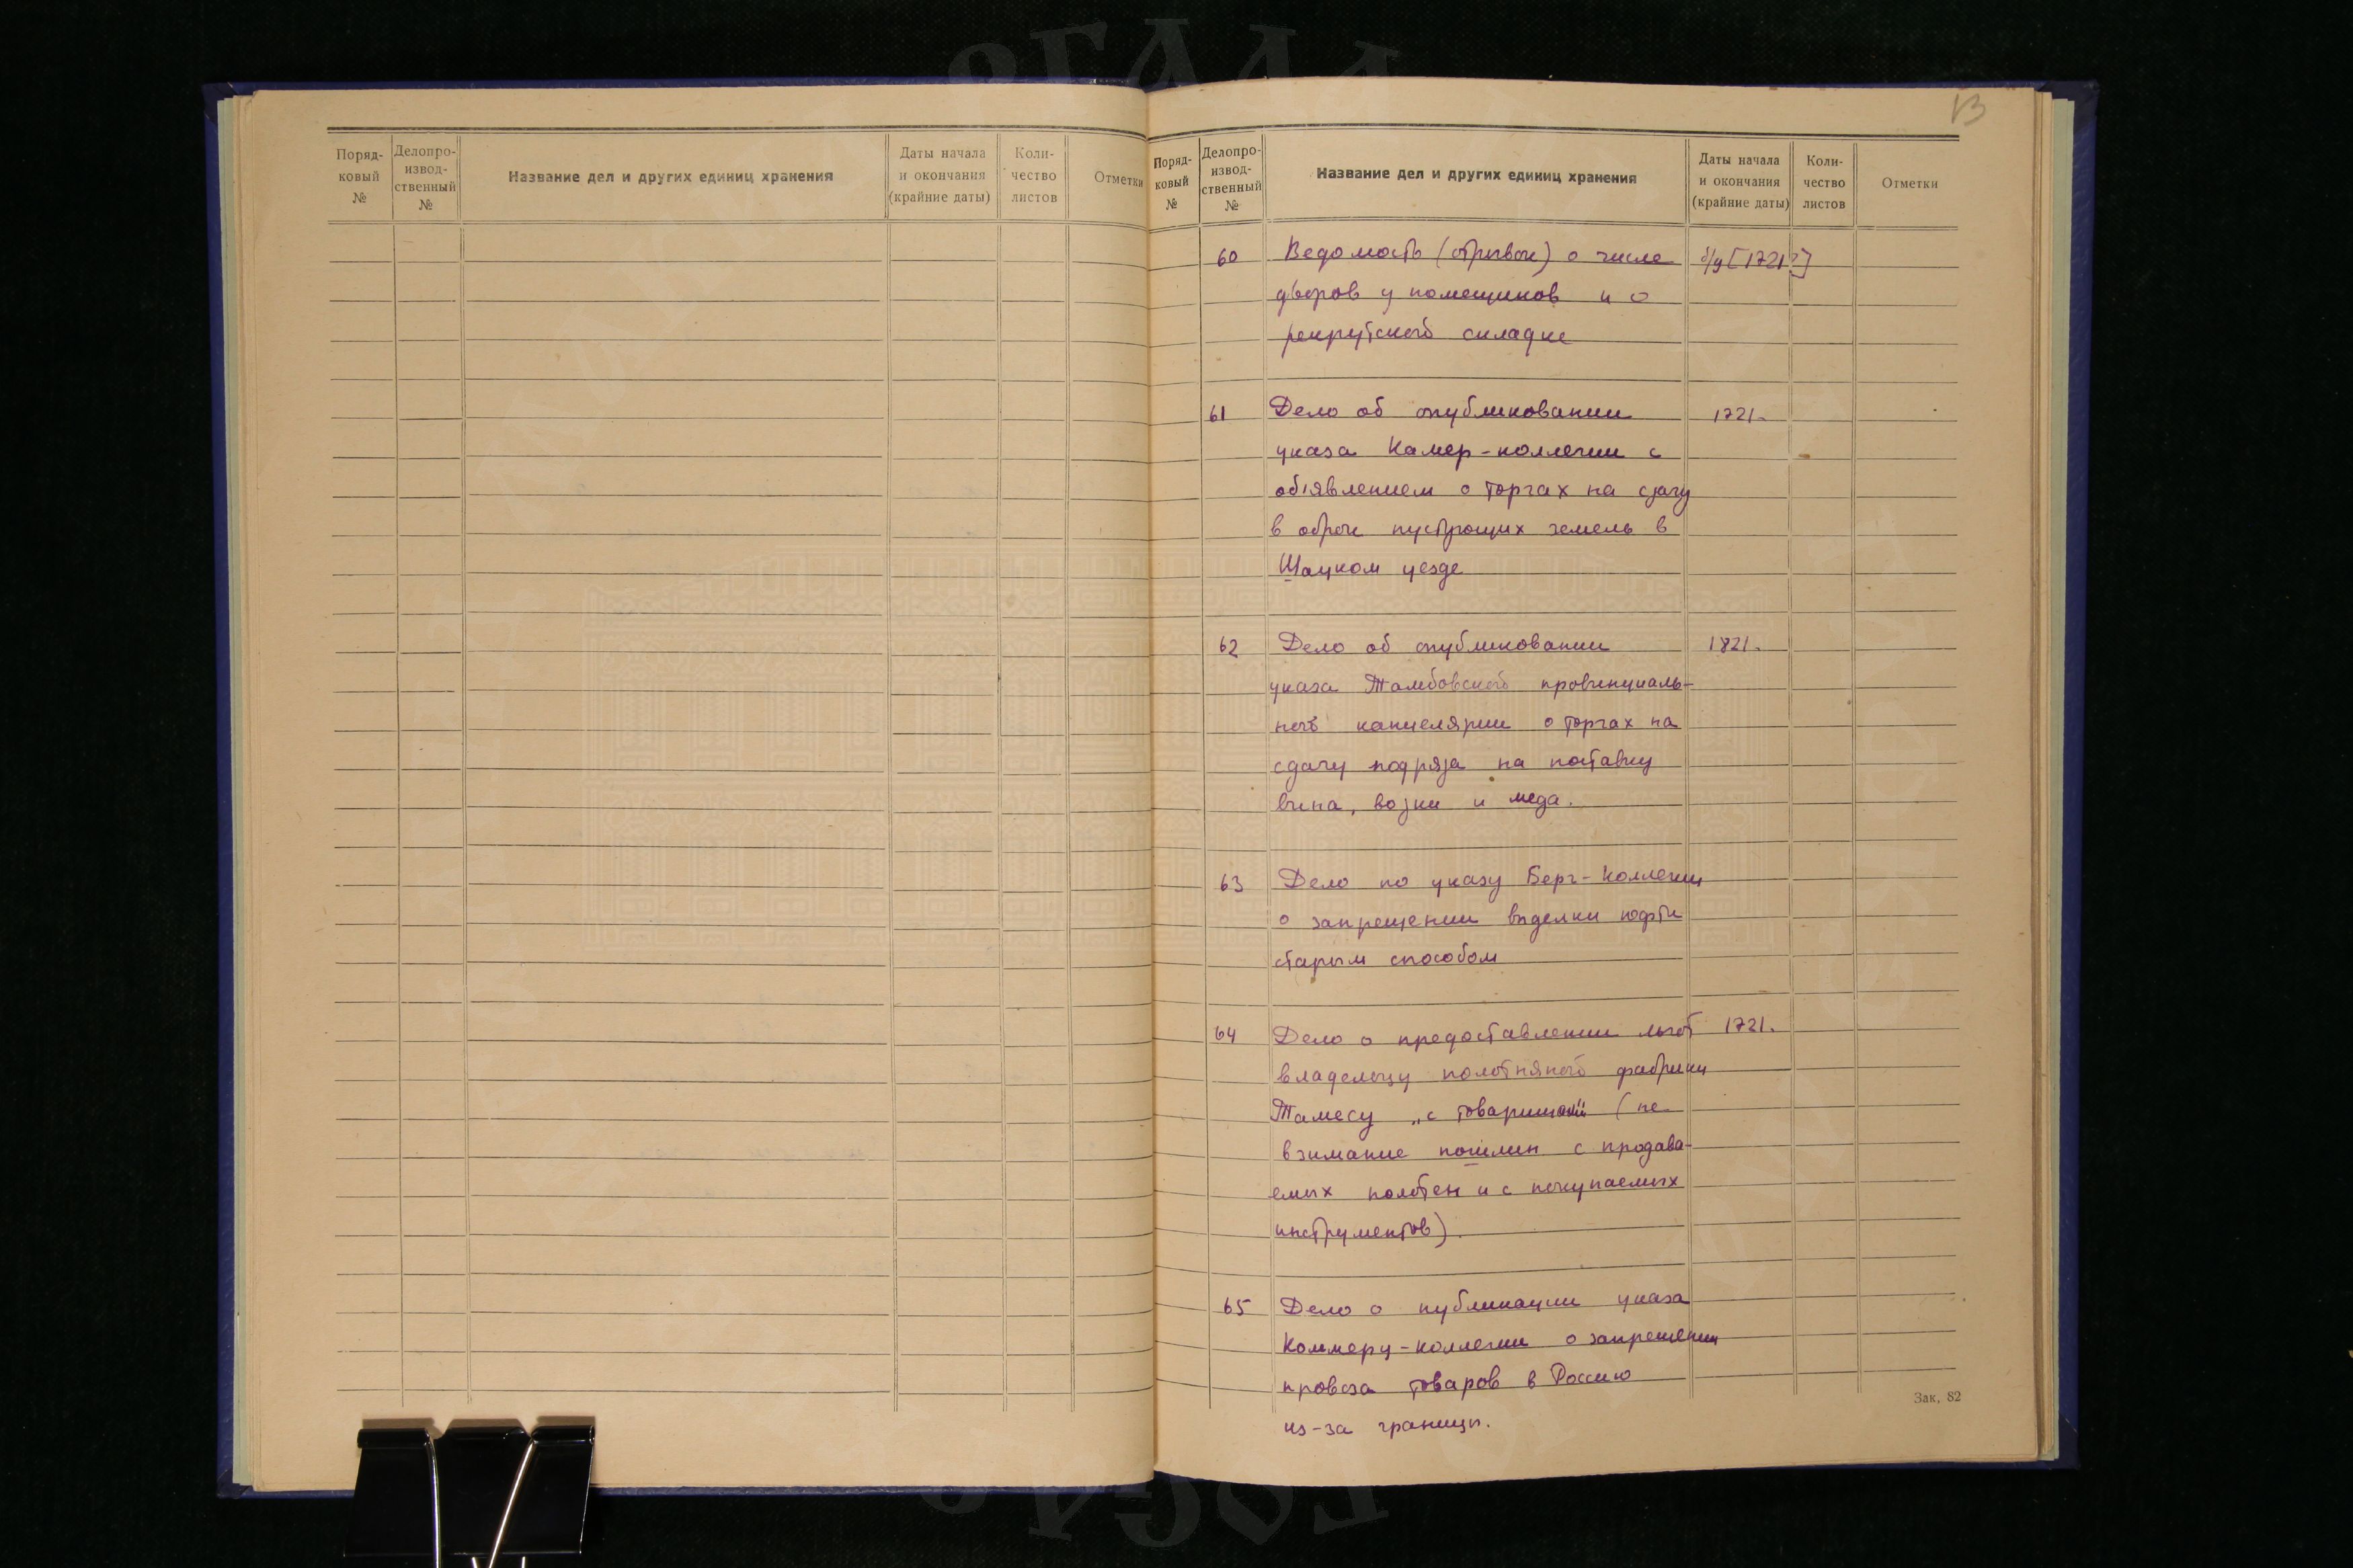 Поряд-
ковый
№
Делопро-
извод-
ственный
№
Название дел и других единиц хранения
Даты начала
и окончания
(крайние даты)
Коли-
чество
листов
Отметки
13
Поряд-
ковый
№
Делопро-
извод-
ственный
№
Название дел и других единиц хранения
Даты начала
и окончания
(крайние даты)
Коли-
чество
листов
Отметки
60 Ведомость (отрывок) о числе б/д [1721?]
дворов у помещиков и о
рекрутской складке
61 Дело об опубликовании 1721.
указа Камер-коллегии с
объявлением о торгах на сдачу
в оброк пустующих земель в
Шацком уезде
62 Дело об опубликовании 1721.
указа Тамбовской провинциаль-
ной канцелярии о торгах на
сдачу подряда на поставку
вина, водки и меда.
63 Дело по указу Берг-Коллегии
о запрещении выделки юфти
старым способом
64 Дело о предоставлении льгот 1721.
владельцу полотняной фабрики
Тамесу „с товарищами" (не
взимание пошлин с продава-
емых полотен и с покупаемых
инструментов).
65 Дело о публикации указа
Коммерц-коллегии о запрещении
провоза товаров в Россию
из-за границы.
Зак. 82